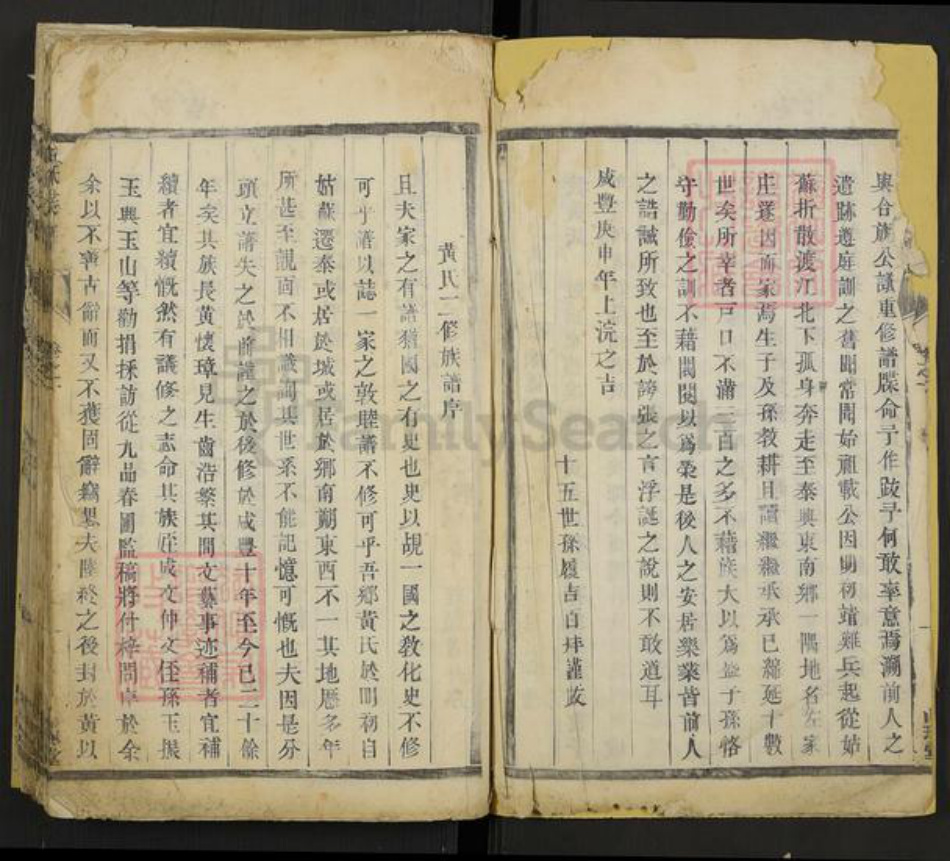 與合族公議重修譜牒命予作跋予何敢率意焉溯前人之
遺跡遵庭訓之舊聞常聞始祖載公因明初靖難兵起從姑
蘇折散渡江北下孤身奔走至泰興東南鄉一隅地名左家
庄遂因而家焉生子及孫教耕且讀繼繼承承已綿延十數
世矣所幸者戸口不滿三百之多不藉族大以爲益子孫恪
守勤儉之訓不藉閥閱以爲榮是後人之安居樂業皆前人
之誥誡所致也至於誇張之言浮誕之說則不敢道耳
咸豐庚申年上浣之吉
十五世孫履吉百拜謹跋
黃氏二修族譜序
且夫家之有譜猶國之有史也史以覘一國之敎化史不修
可乎譜以誌一家之敦睦譜不修可乎吾鄉黃氏於明初自
姑蘇遷泰或居於城或居於鄉南朔東西不一其地歷多年
所甚至覿面不相識詢其世系不能記憶可慨也夫因是分
頭立譜失之於前謹之於後修於咸豐十年至今已二十餘
年矣其族長黃懷璋見生齒浩繁其間文藝事迹補者宜補
續者宜續慨然有議修之志命其族侄成文仲文侄孫玉振
玉興玉山等勸捐採訪從九品春圃監稿將付梓問序於余
余以不善古辭而又不獲固辭竊思夫陸終之後封於黃以
FamilySearch